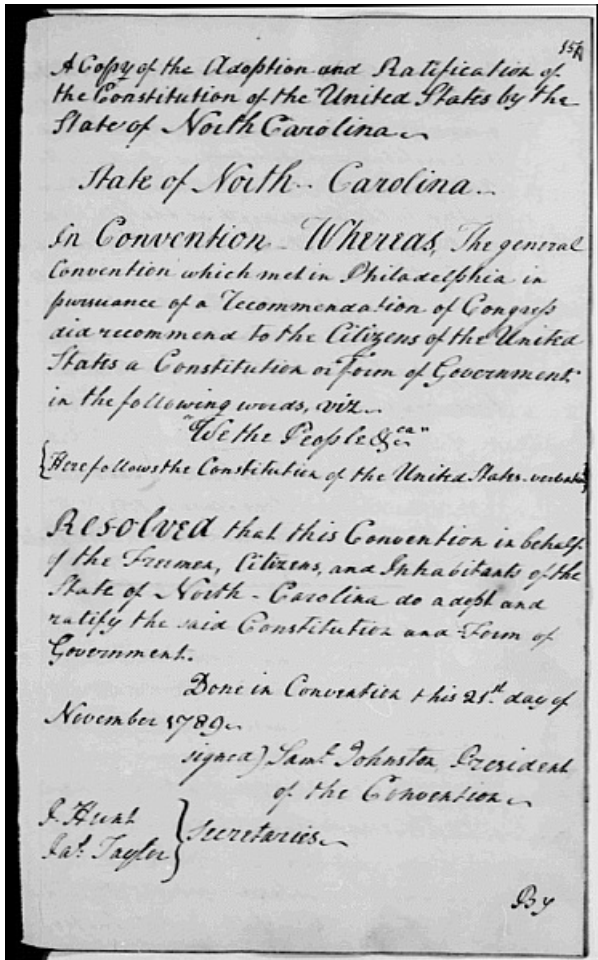 A Copy of the Adoption and Ratification of
the Constitution of the United States by the
State of North Carolina
State of North - Carolina
In Convention Whereas, The general
Convention which met in Philadelphia in
pursuance of a recommendation of Congress
did recommend to the Citizens of the United
States a Constitution or form of Government
in the following words, viz
"We the People &ca"
{Here follows the Constitution of the United States verbatim}
Resolved that this Convention in behalf
of the Freemen, Citizens, and Inhabitants of the
State of North - Carolina do adopt and
ratify the said Constitution and Form of
Government.
Done in Convention this 21st day of
November 1789
signed) Saml Johnston President
of the Convention
J. Hunt
Jas. Taylor } Secretaries
By